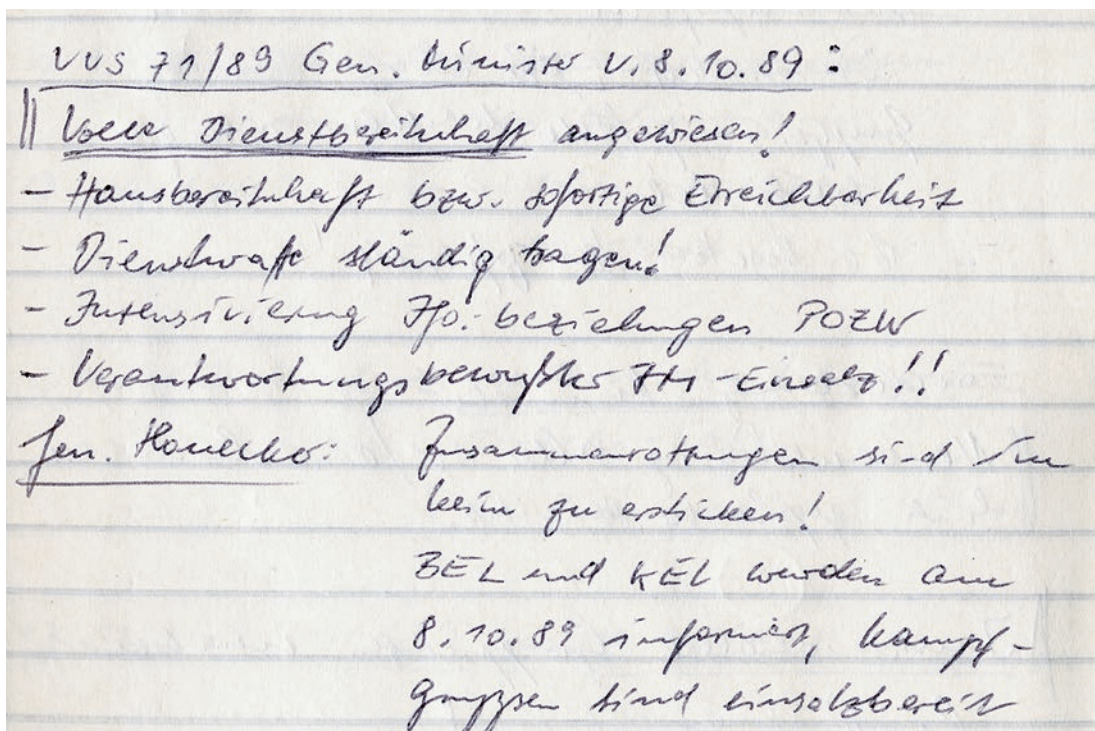 VVS 71/89 Gen. Minister v. 8.10.89:
Volle Dienstbereitschaft angewiesen!
- Hausbereitschaft bzw. sofortige Erreichbarkeit
- Dienstwaffe ständig tragen!
- Intensivierung Ifo.-beziehungen POZW
- Verantwortungsbewußter IM-Einsatz!!
Gen. Honecker: Zusammenrottungen sind im
Keim zu ersticken!
BEL und KEL werden am
8.10.89 informiert, Kampf-
gruppen sind einsatzbereit